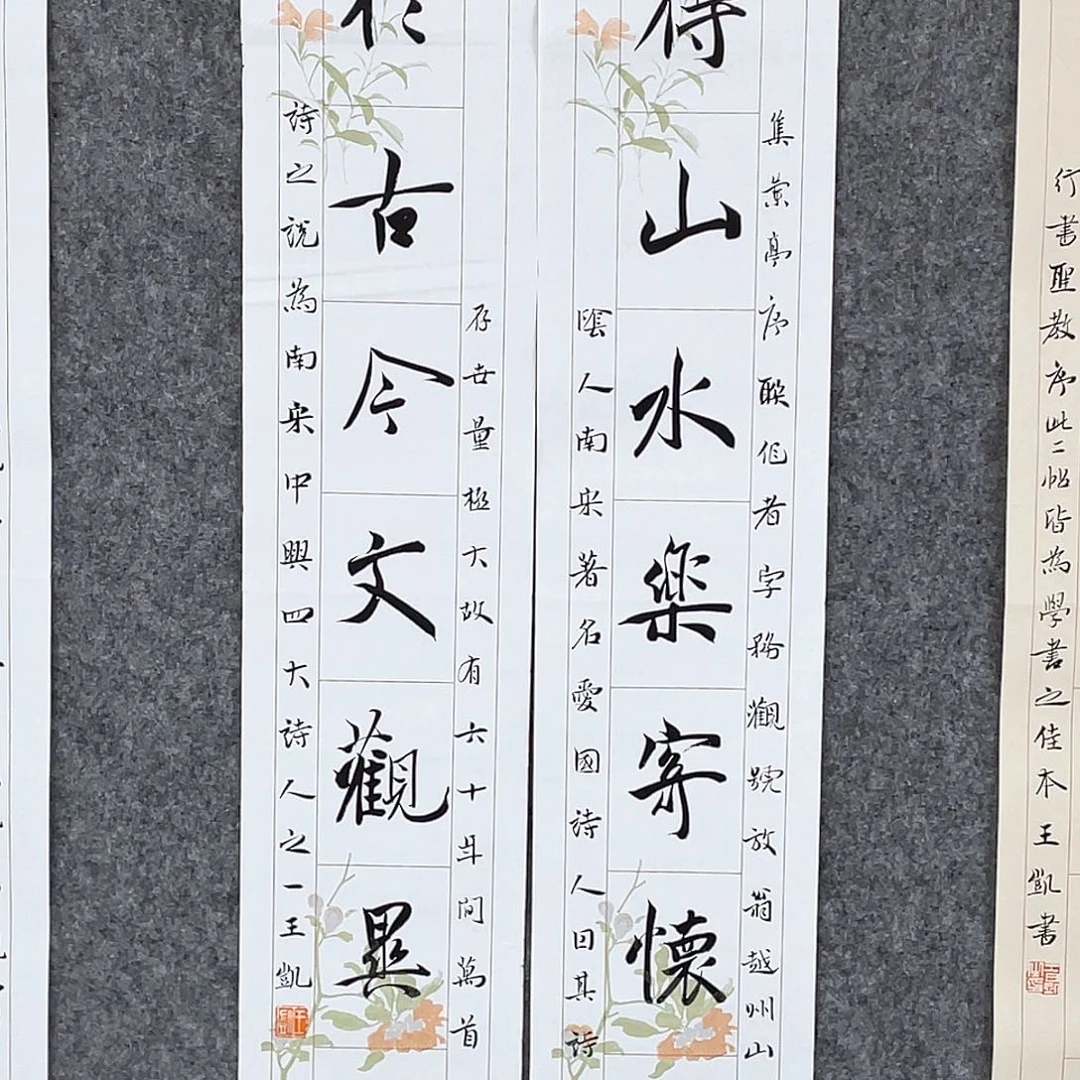 行書聖教序此二帖皆為學書之佳本王凱書
集蘭亭序聯作者字務觀號放翁越州山
得山水樂寄懷
陰人南宋著名愛國詩人因其詩
存世量極大故有六十年間萬首
於古今文觀異
詩之說為南宋中興四大詩人之一王凱